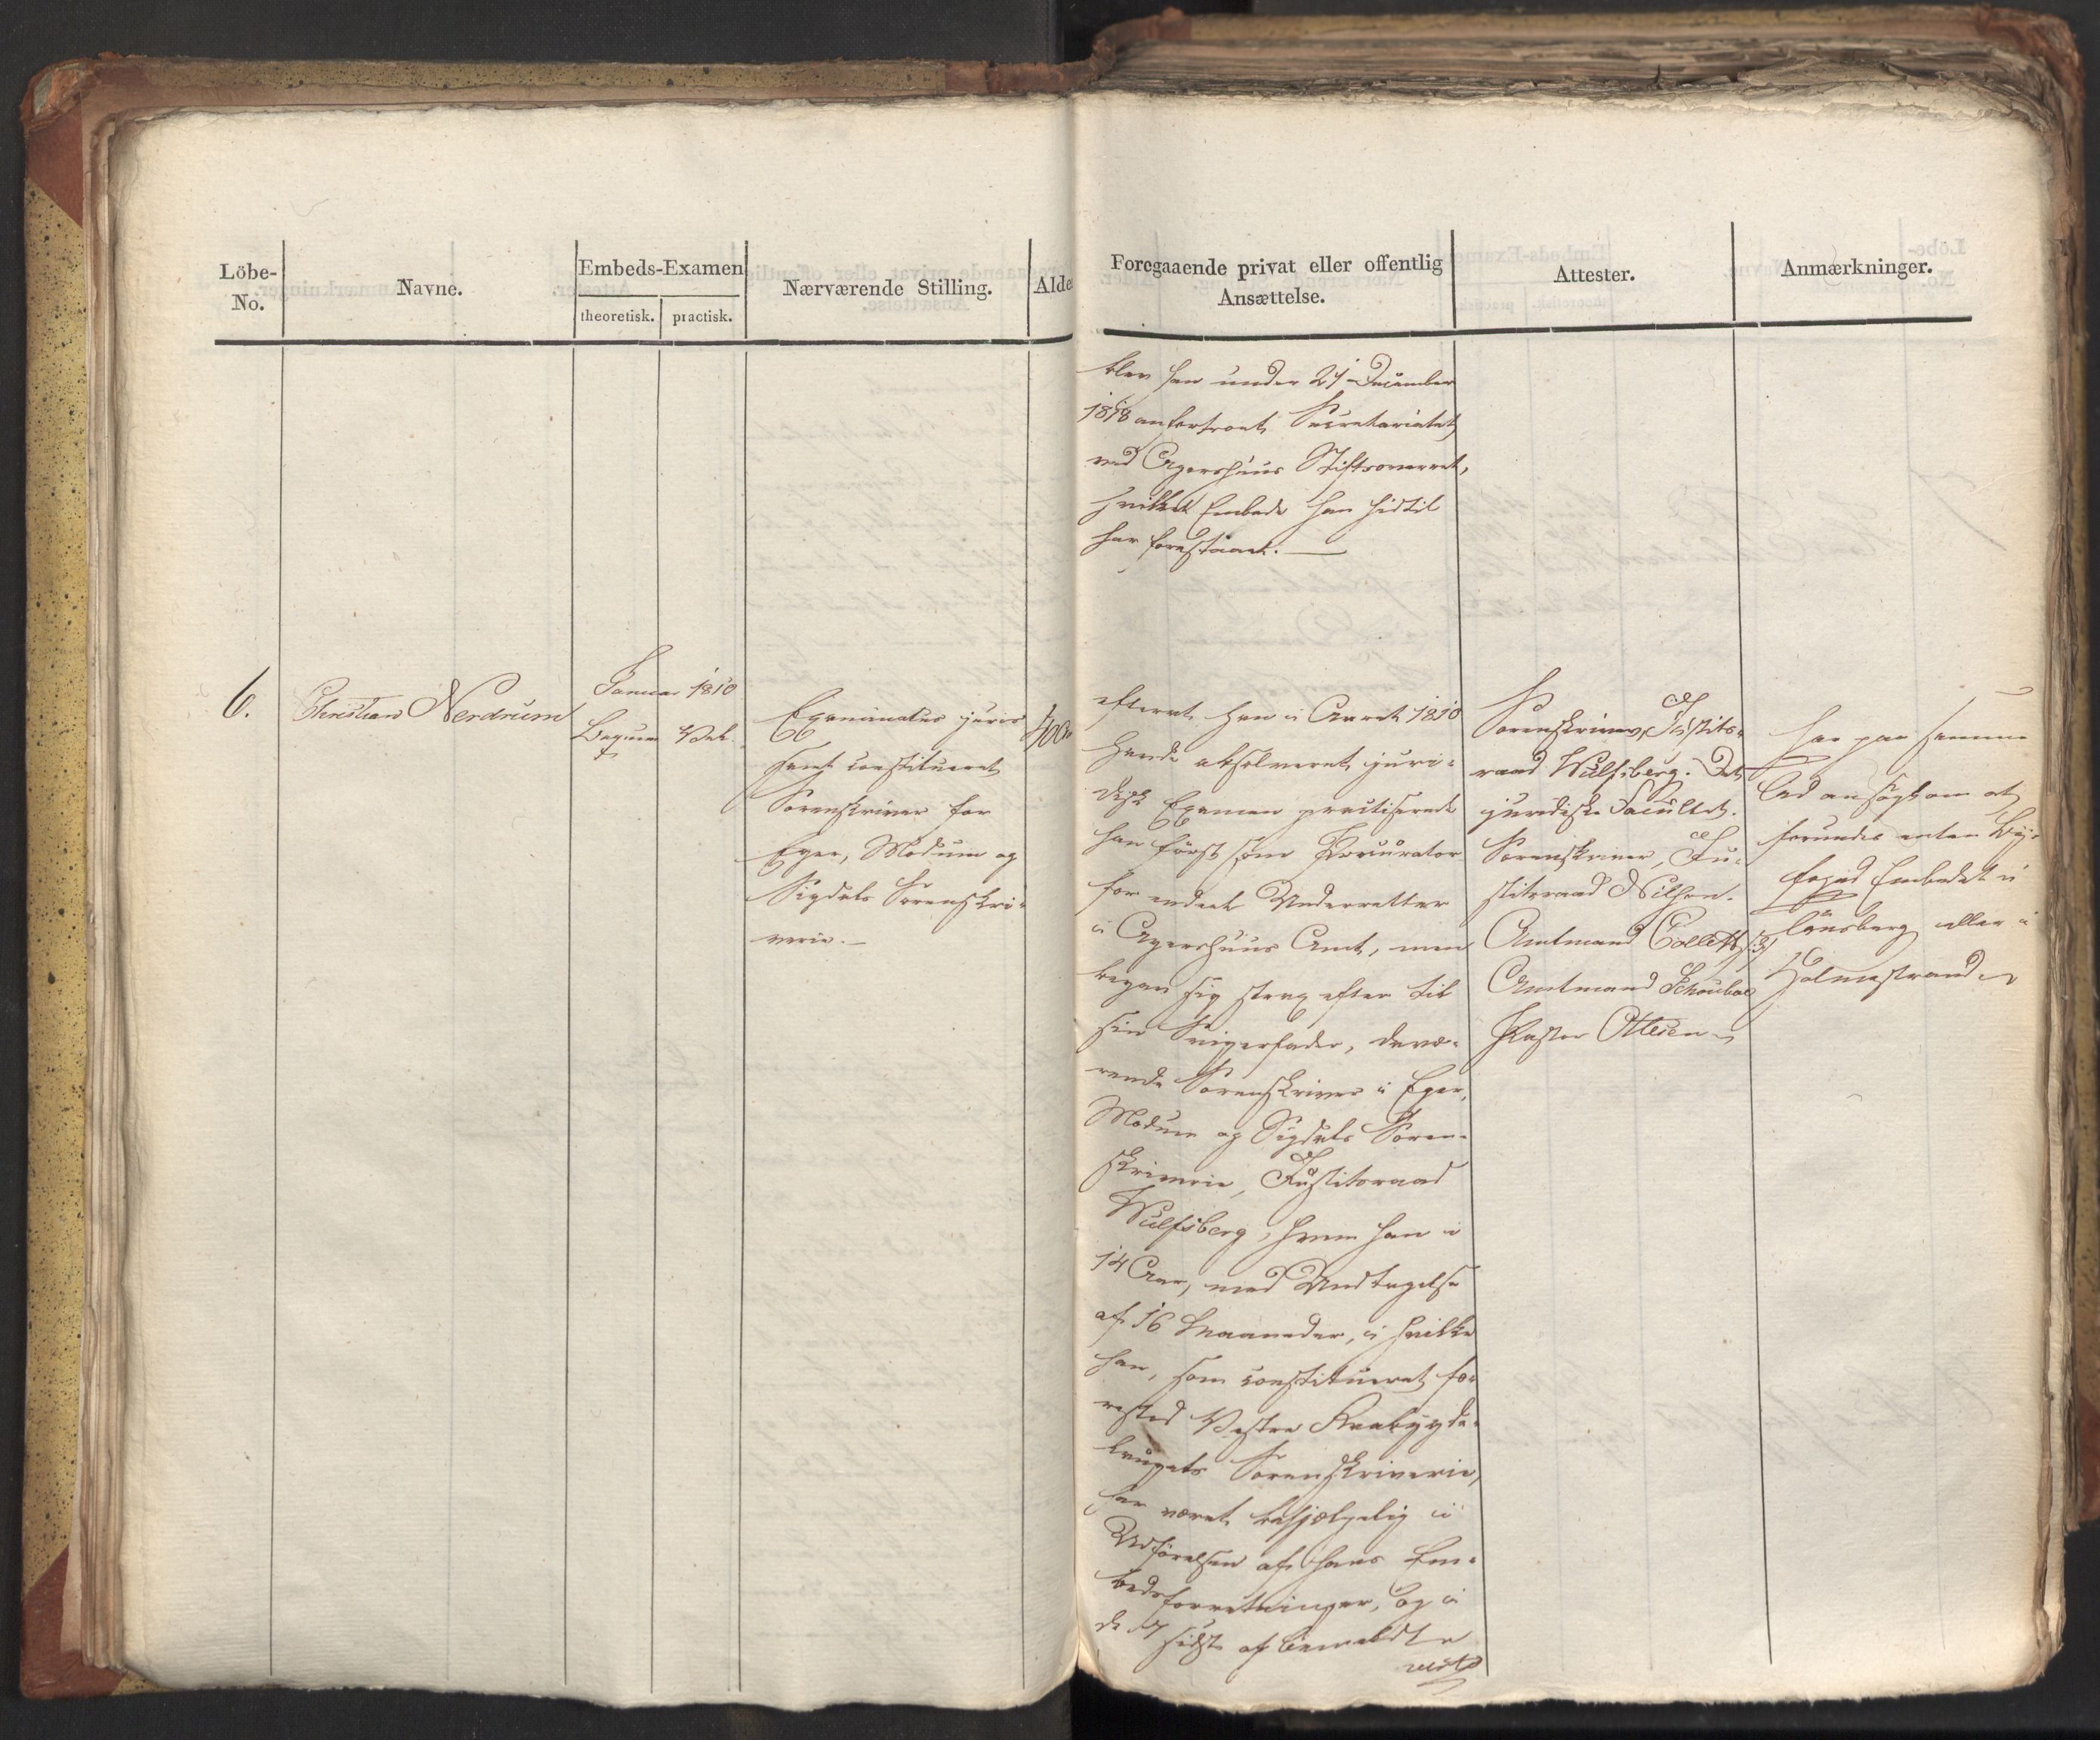 Löbe-
No.
Navne.
Embeds-Examen
theoretisk.
practisk.
Nærværende Stilling.
Alde
Foregaaende privat eller offentlig
Ansættelse.
Attester.
Anmærkninger.
blev han under 21 December
1818 anbetroet Secretariatet
ved Agershuus Stiftsoverret,
hvilket Embede han hidtil
har forestaaet. —
6.
Christian Nerdrum
Januar 1810
Beqvem Vel.
Examinatus juris
samt constitueret
Sorenskriver for
Eger, Modum og
Sigdals Sorenskri-
verie. —
40
efterat han i Aaret 1810
havde absolveret juri-
disk Examen practiserede
han först som Procurator
for endeel Underretter
i Agershuus Amt, men
begav sig strax efter til
sin Svigerfader, davæ-
rende Sorenskriver i Eger,
Modum og Sigdals Soren-
skriverie, Justitsraad
Wulfsberg, hvem han i
14 Aar, med Undtagelse
af 16 Maaneder, i hvilke
han, som constitueret fo-
restod Vestre Raabygde-
laugets Sorenskriverie,
har været behjelpelig i
Udförelsen af hans Em-
bedsforretninger, og i
de 7 sidste af bemeldte
Sorenskriver, Justits-
raad Wulfsberg. Det
juridiske Facultet.
Sorenskriver, Ju-
stitsraad Nilsen.
Amtmand Collett
Amtmand Schouboe
Pastor Ottesen
Har paa samme
Tid ansögt om at
forundes enten By-
foged Embedet i
Tönsberg eller i
Holmestrand